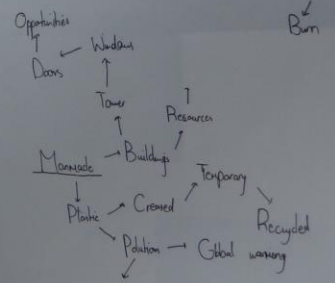 Opportunities
Burn
Windows
Doors
Tower
Resources
Manmade
Buildings
Temporary
Plastic
Created
Recycled
Pollution
Global warming